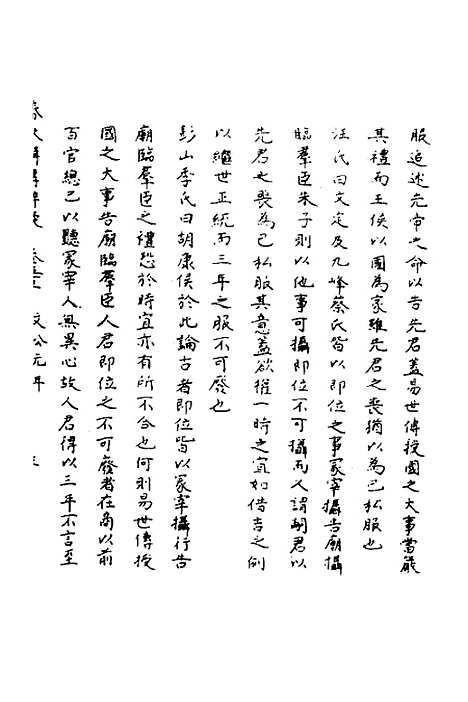 服追述先帝之命以告先君蓋易世傳授國之大事當嚴
其禮而王侯以國為家雖先君之喪猶以為己私服也
汪氏曰文定及九峰蔡氏皆以即位之事冢宰攝告廟攝
臨羣臣朱子則以他事可攝即位不可攝而又謂嗣君以
先君之喪為己私服其意蓋欲權一時之宜如借吉之例
以繼世正統而三年之服不可廢也
彭山季氏曰胡康侯於此論古者即位皆以冢宰攝行告
廟臨羣臣之禮恐於時宜亦有所不合也何則易世傳授
國之大事告廟臨羣臣人君即位之不可廢者在商以前
百官總己以聽冢宰人無異心故人君得以三年不言至
春秋 文公元年